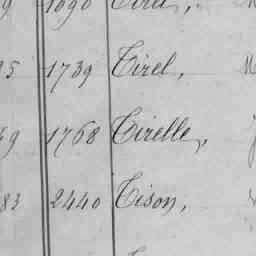 9 1690
95 1739 Tirel,
69 1768 Tirelle,
83 2440 Tison,